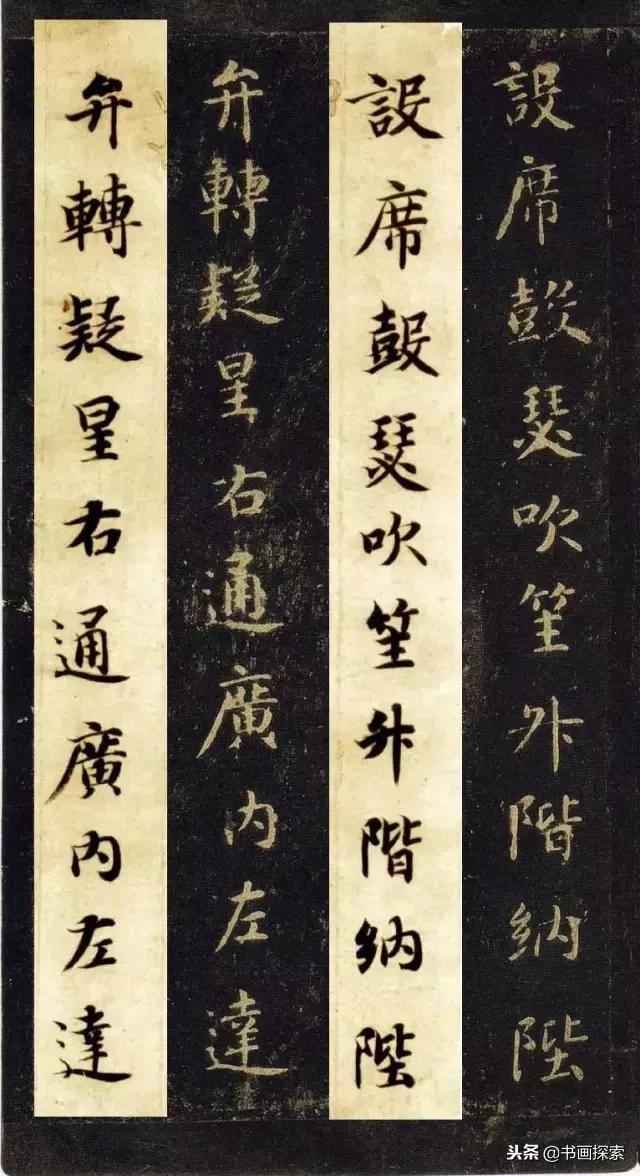 設席鼓瑟吹笙升階納陛
設席鼓瑟吹笙升階納陛
弁轉疑星右通廣内左達
弁轉疑星右通廣内左達
头条 @书画探索